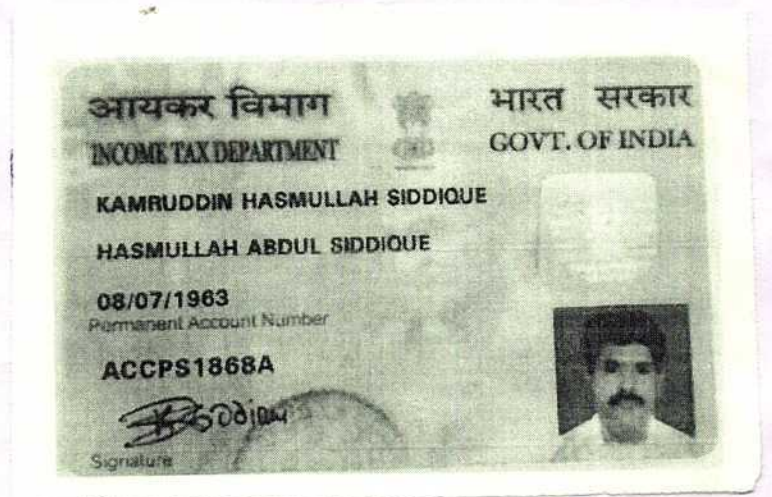 आयकर विभाग
INCOME TAX DEPARTMENT
भारत सरकार
GOVT. OF INDIA
KAMRUDDIN HASMULLAH SIDDIQUE
HASMULLAH ABDUL SIDDIQUE
08/07/1963
Permanent Account Number
ACCPS1868A
Signature